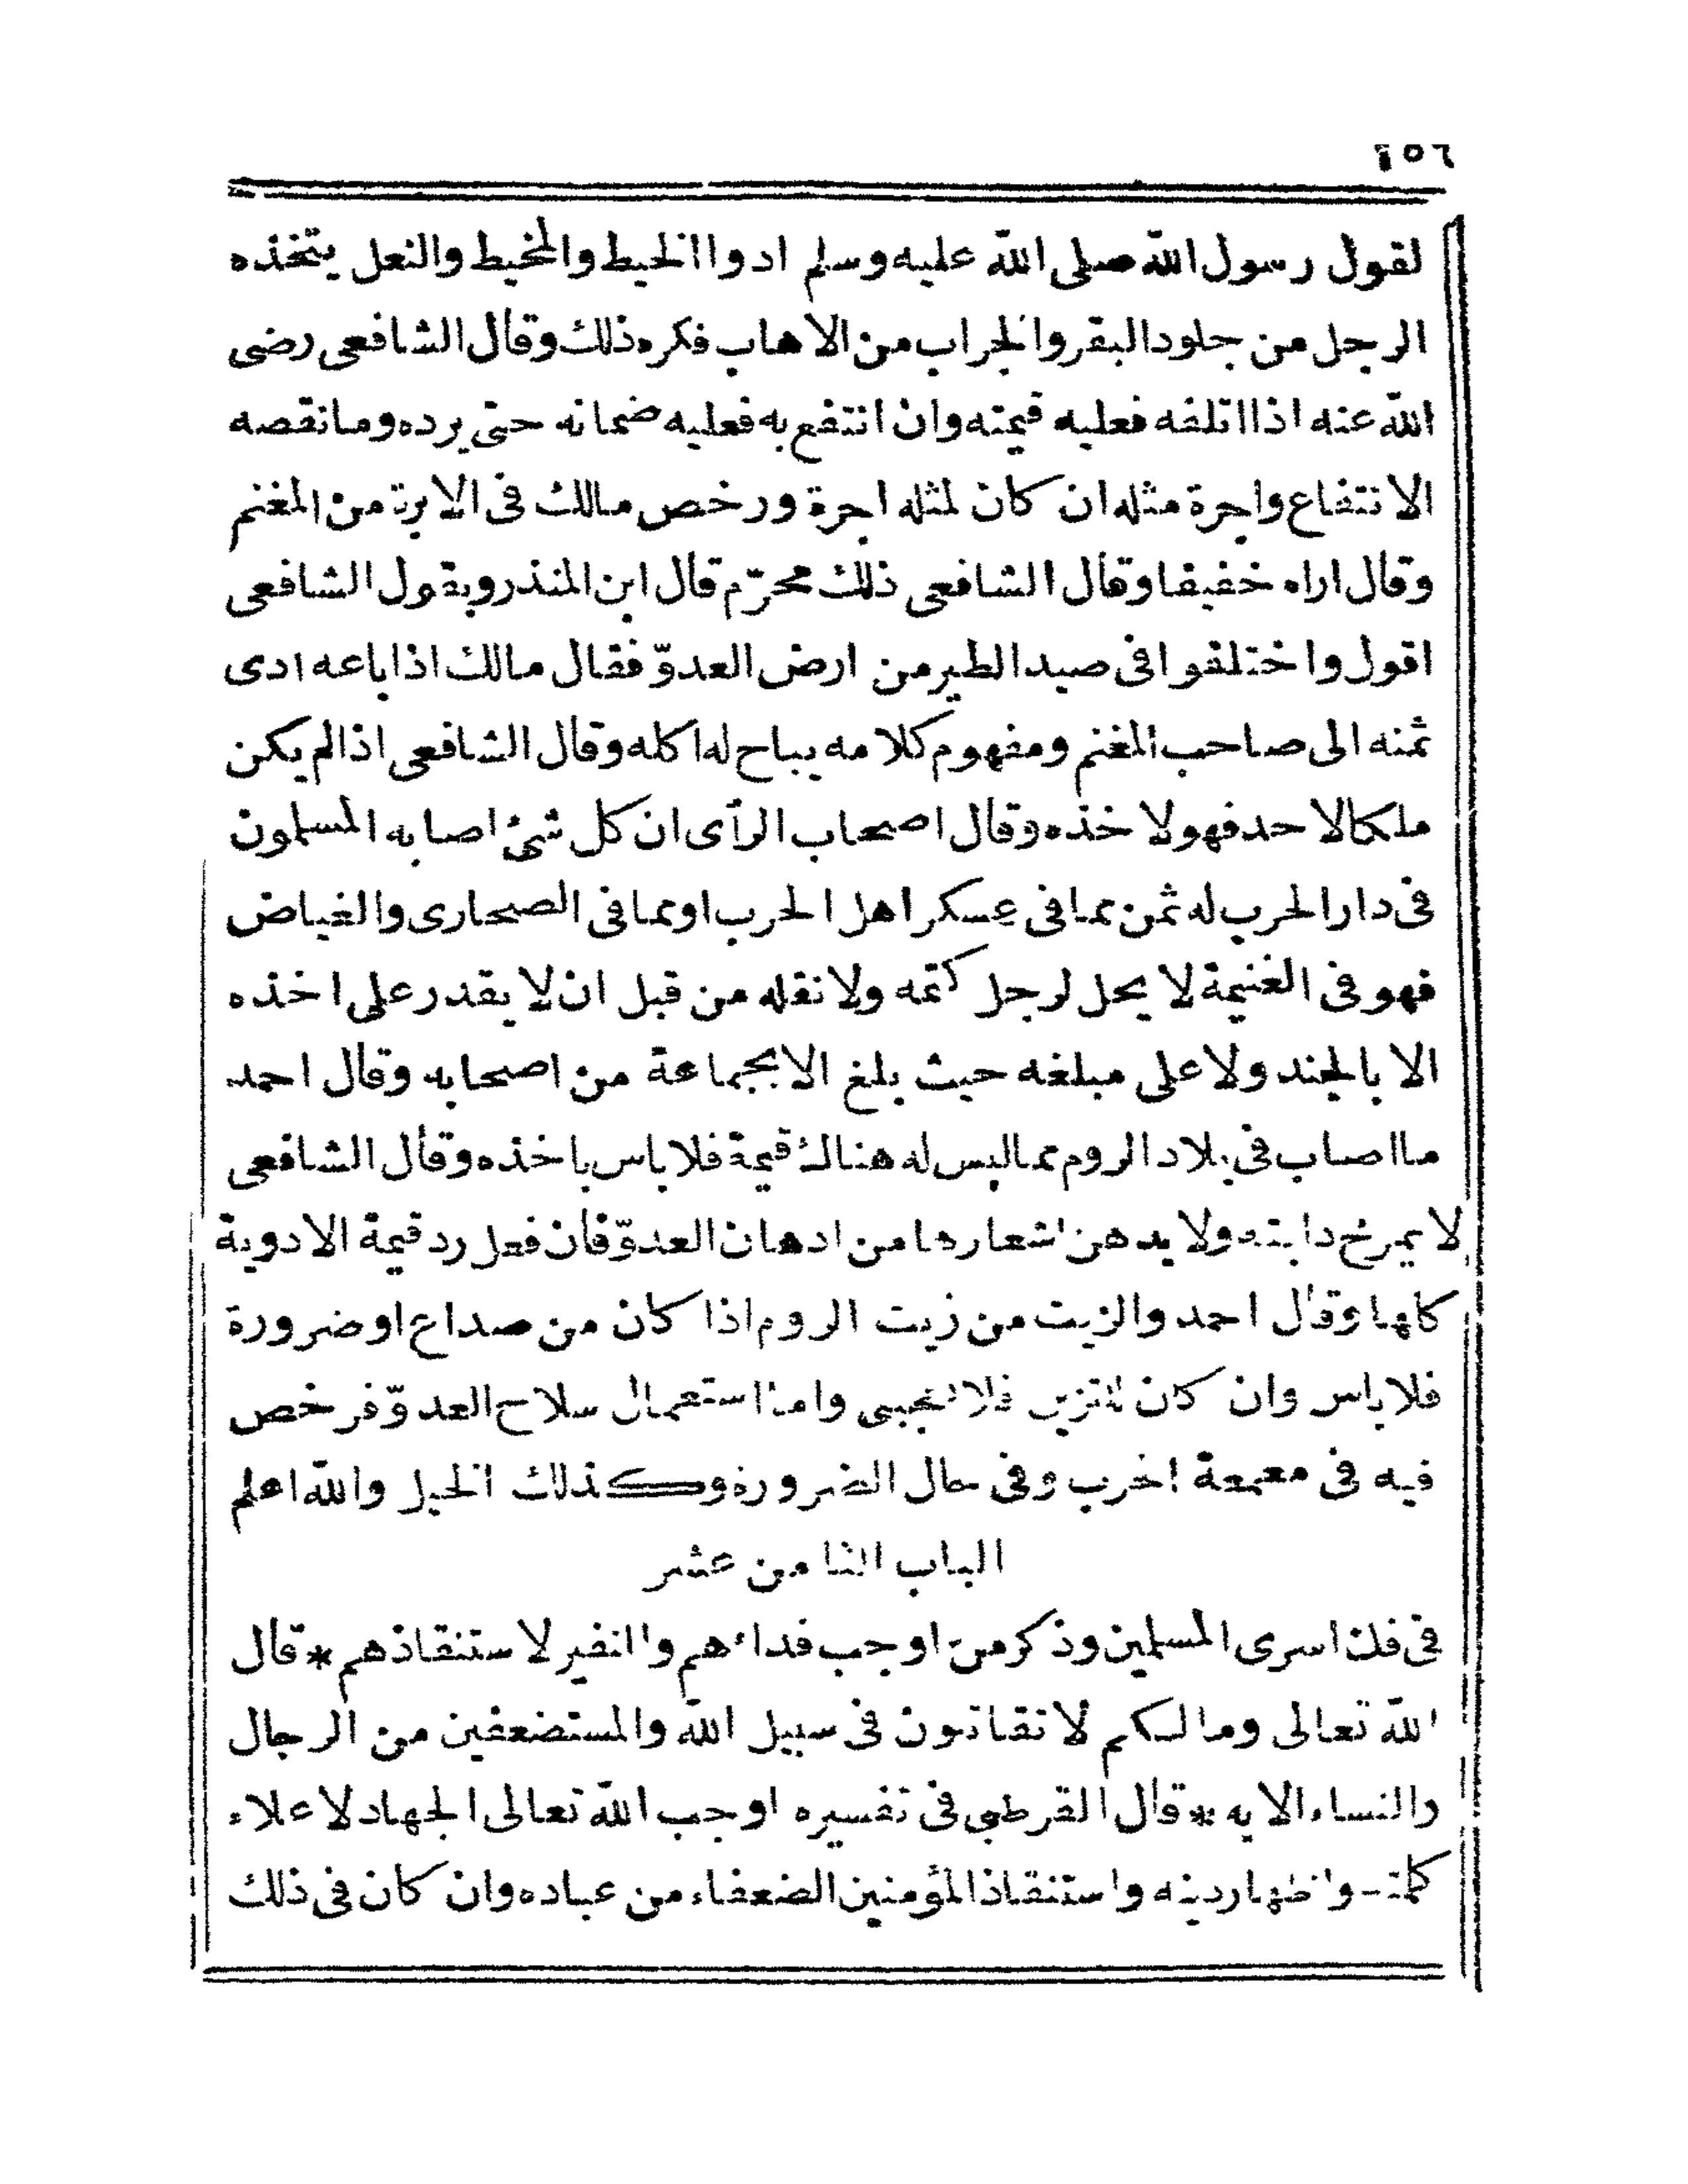 ٤٥٦
لقول رسول الله صلى الله عليه وسلم ادوا الخيط والمخيط والنعل يتخذه
الرجل من جلود البقر والجراب من الاهاب فكره ذلك وقال الشافعى رضى
الله عنه اذا اتلفه فعليه قيمته وان انتفع به فعليه ضمانه حتى يرده وما نقصه
الانتفاع واجرة مثله ان كان لمثله اجرة ورخص مالك فى الابرة من المغنم
وقال اراه خفيفا وقال الشافعى ذلك محرّم قال ابن المنذر وبقول الشافعى
اقول واختلفوا فى صيد الطير من ارض العدوّ فقال مالك اذا باعه ادى
ثمنه الى صاحب المغنم ومفهوم كلامه يباح له اكله وقال الشافعى اذا لم يكن
ملكا لاحد فهو لاخذه وقال اصحاب الرآى ان كل شئ اصابه المسلمون
فى دار الحرب له ثمن مما فى عسكر اهل الحرب او مما فى الصحارى والغياض
فهو فى الغنيمة لا يحل لرجل كتمه ولا نقله من قبل ان لا يقدر على اخذه
الا بالجند ولا على مبلغه حيث بلغ الا بجماعة من اصحابه وقال احمد
ما اصاب فى بلاد الروم مما ليس له هناك قيمة فلا باس باخذه وقال الشافعى
لا يمرخ دابته ولا يدهن اشعارها من ادهان العدوّ فان فعل رد قيمة الادوية
كلها وقال احمد والزيت من زيت الروم اذا كان من صداع او ضرورة
فلا باس وان كان للتزين فلا يعجبنى واما استعمال سلاح العدوّ فرخص
فيه فى معمعة الحرب وفى حال الضرورة وكذلك الخيل والله اعلم
الباب الثامن عشر
فى فك اسرى المسلمين وذكر من اوجب فداءهم والنفير لاستنقاذهم * قال
الله تعالى وما لكم لا تقاتلون فى سبيل الله والمستضعفين من الرجال
والنساء الايه * قال القرطبى فى تفسيره اوجب الله تعالى الجهاد لاعلاء
كلمته واظهار دينه واستنقاذ المؤمنين الضعفاء من عباده وان كان فى ذلك